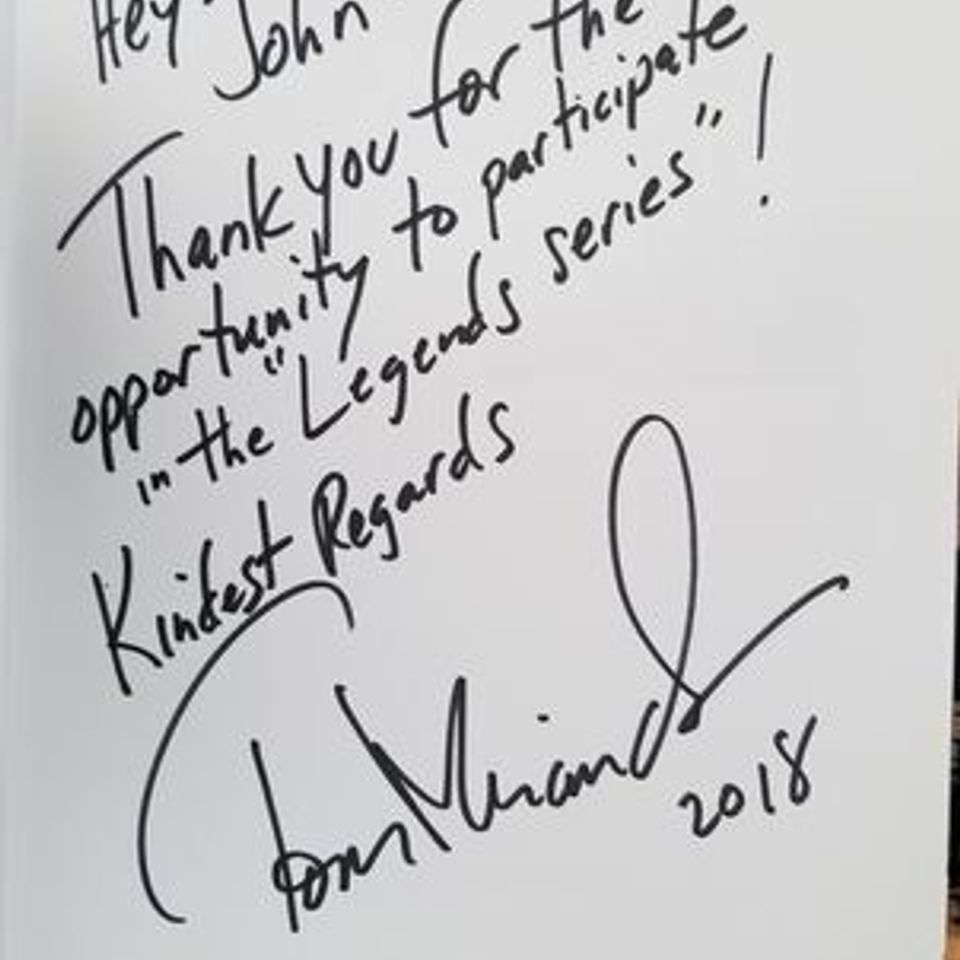 Hey John
Thank you for the
opportunity to participate
in the "Legends series"!
Kindest Regards
Tom Miranda
2018